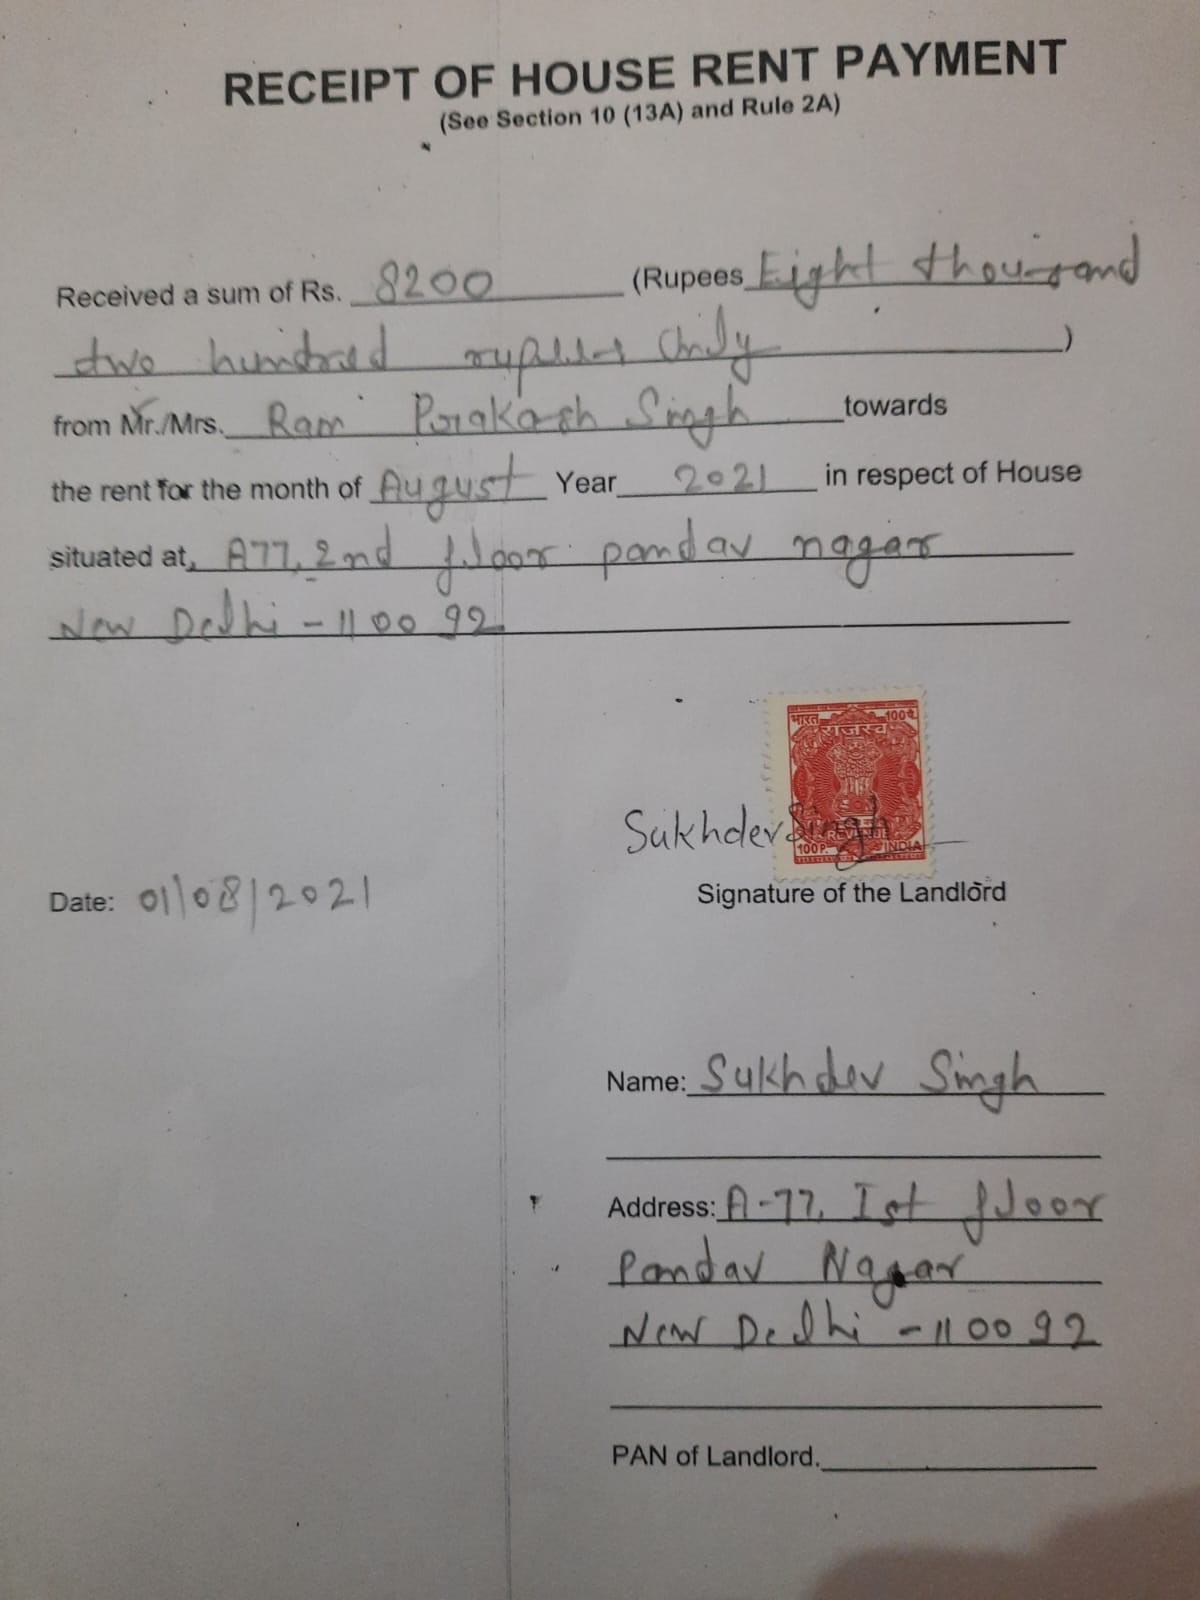 RECEIPT OF HOUSE RENT PAYMENT
(See Section 10 (13A) and Rule 2A)
Received a sum of Rs. 8200 (Rupees Eight thousand
two hundred rupees Only )
from Mr./Mrs. Ram Prakash Singh towards
the rent for the month of August Year 2021 in respect of House
situated at, A77, 2nd floor pandav nagar
New Delhi - 110092
भारत 100पै.
राजस्व
REVENUE
100P. INDIA
Sukhdev Singh
Signature of the Landlord
Date: 01/08/2021
Name: Sukhdev Singh
Address: A-77, Ist floor
Pandav Nagar
New Delhi - 110092
PAN of Landlord.